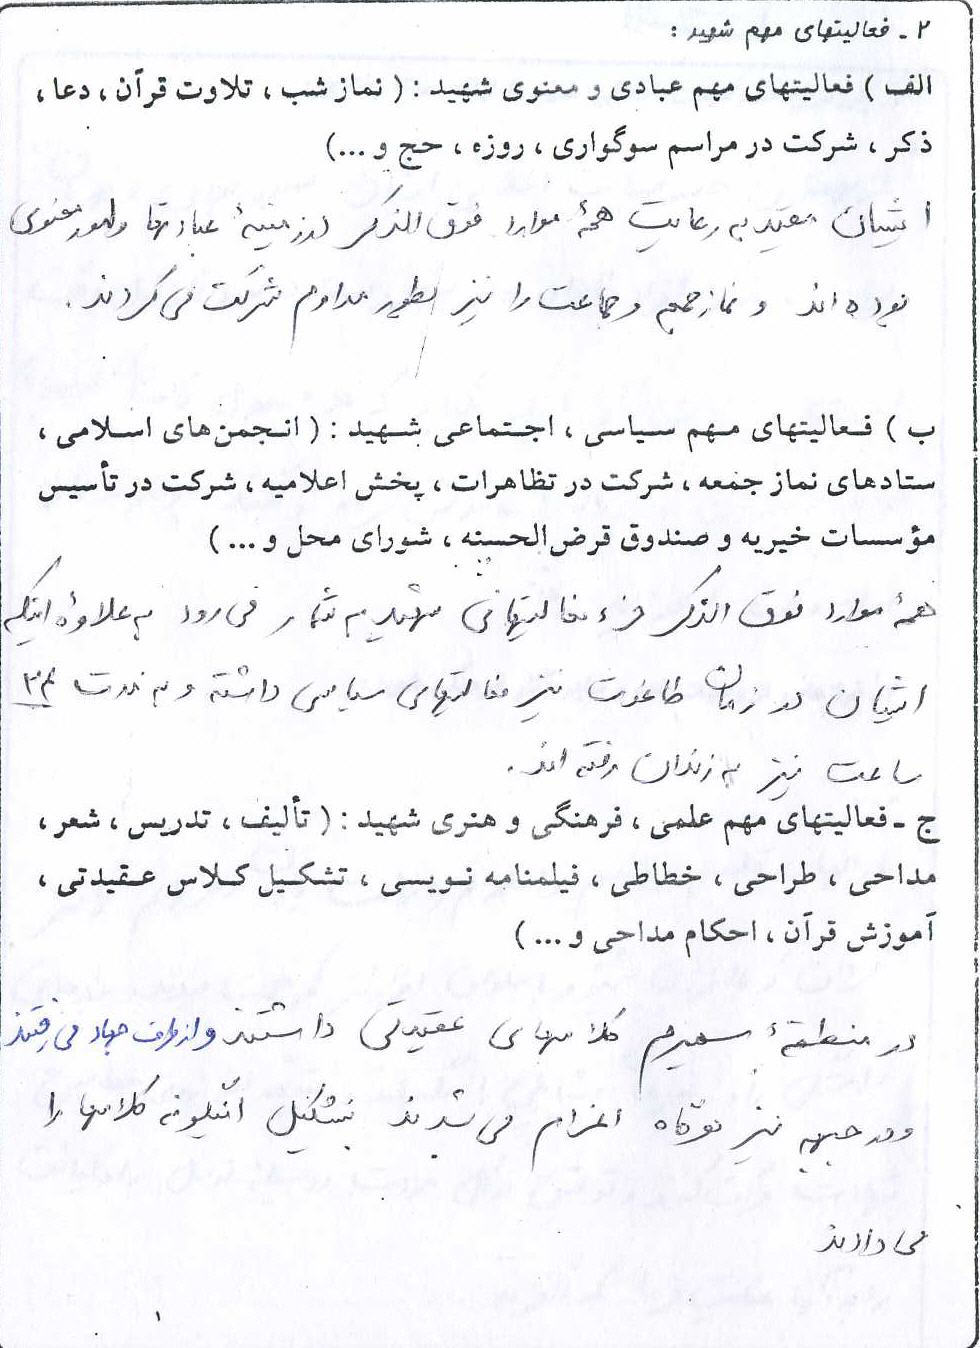 ۲ - فعالیتهای مهم شهید :
الف ) فعالیتهای مهم عبادی و معنوی شهید : ( نماز شب ، تلاوت قرآن ، دعا ،
ذکر ، شرکت در مراسم سوگواری ، روزه ، حج و ...)
ایشان مقید به رعایت همهٔ موارد فوق الذکر در زمینهٔ عبادتها و امور معنوی
بوده اند و نماز جمعه و جماعت را نیز بطور مداوم شرکت می کردند .
ب ) فعالیتهای مهم سیاسی ، اجتماعی شهید : ( انجمن‌های اسلامی ،
ستادهای نماز جمعه ، شرکت در تظاهرات ، پخش اعلامیه ، شرکت در تأسیس
مؤسسات خیریه و صندوق قرض‌الحسنه ، شورای محل و ... )
همهٔ موارد فوق الذکر جزء فعالیتهای شهید به شمار می رود به علاوهٔ اینکه
ایشان در زمان طاغوت نیز فعالیتهای سیاسی داشته و به مدت
ساعت نیز به زندان رفته اند .
ج - فعالیتهای مهم علمی ، فرهنگی و هنری شهید : ( تألیف ، تدریس ، شعر ،
مداحی ، طراحی ، خطاطی ، فیلمنامه نویسی ، تشکیل کلاس عقیدتی ،
آموزش قرآن ، احکام مداحی و ... )
در منطقهٔ سمیرم کلاسهای عقیدتی داشتند و از طرف جهاد می رفتند
و در جبهه نیز هرگاه اعزام می شدند تشکیل اینگونه کلاسها را
می دادند
۱